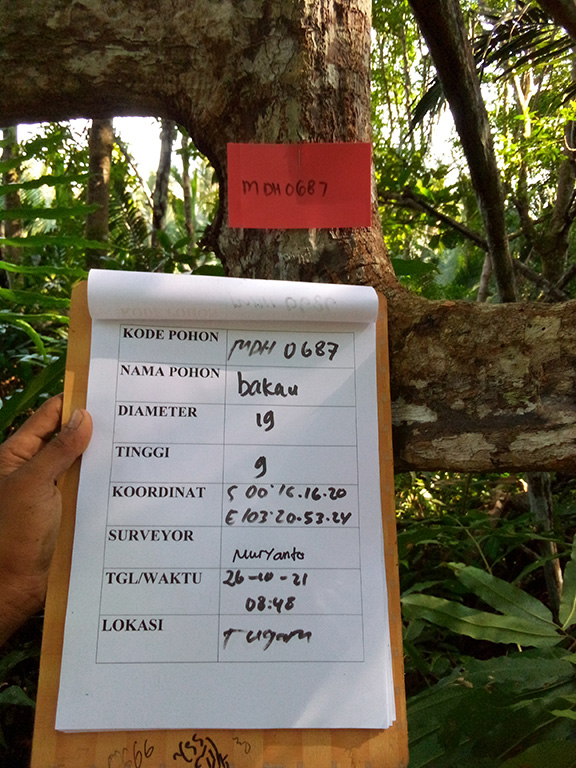 MDH0687
KODE POHON MDH 0687
NAMA POHON bakau
DIAMETER 19
TINGGI 9
KOORDINAT S 00°16.16.20
E103°20.53.24
SURVEYOR Nuryanto
TGL/WAKTU 26-10-21
08:48
LOKASI